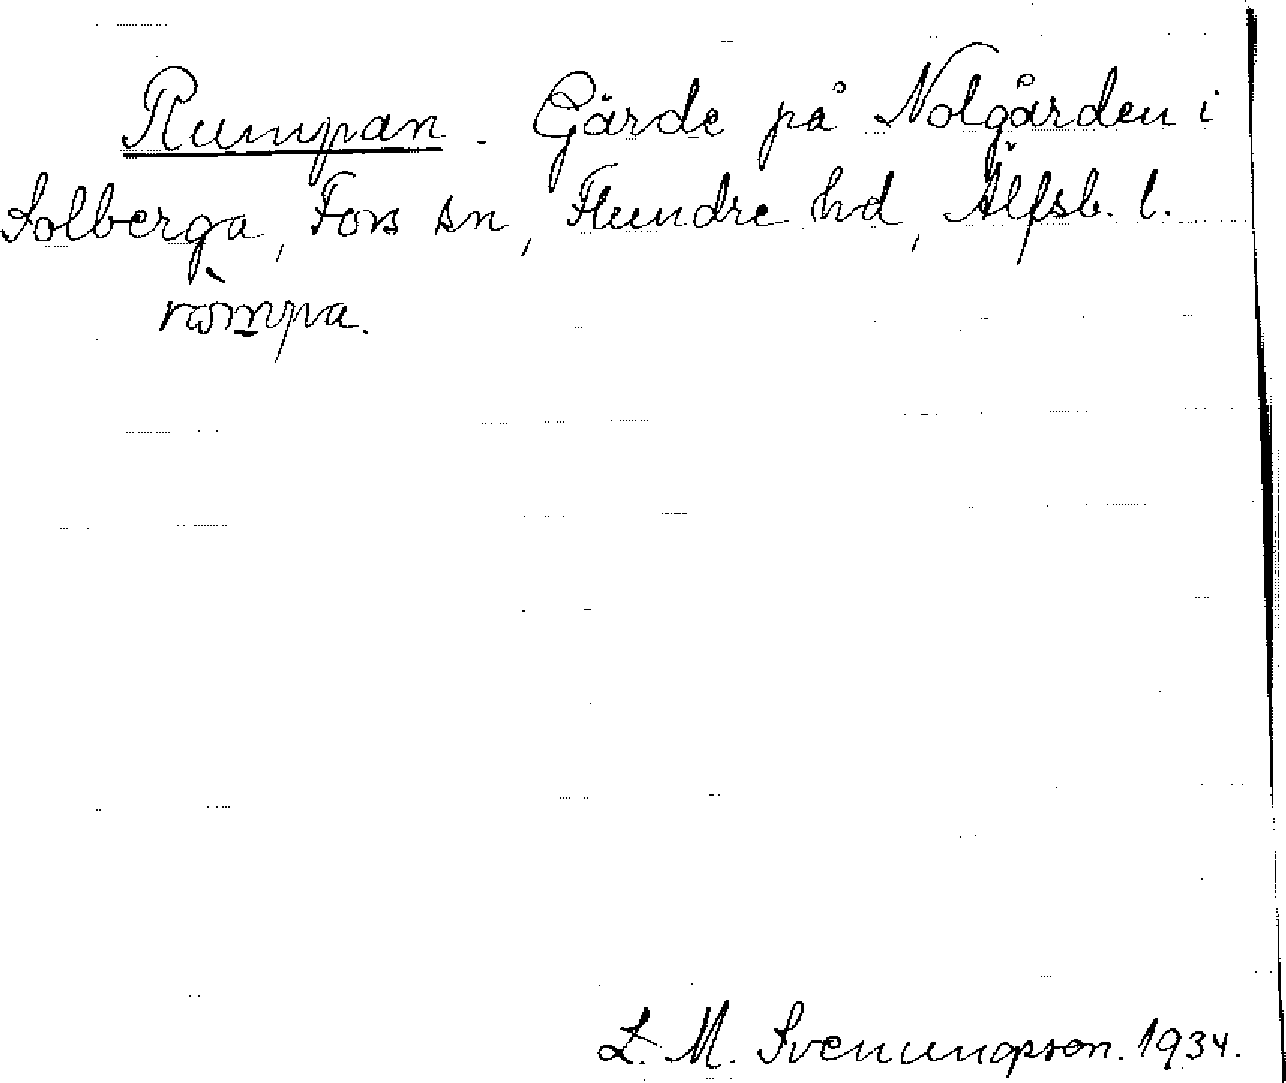 Rumpan. Gärde på Nolgården i
Solberga, Fors sn, Flundre hd, Älfsb. l.
ròmpa.
L. M. Svenungsson. 1934.